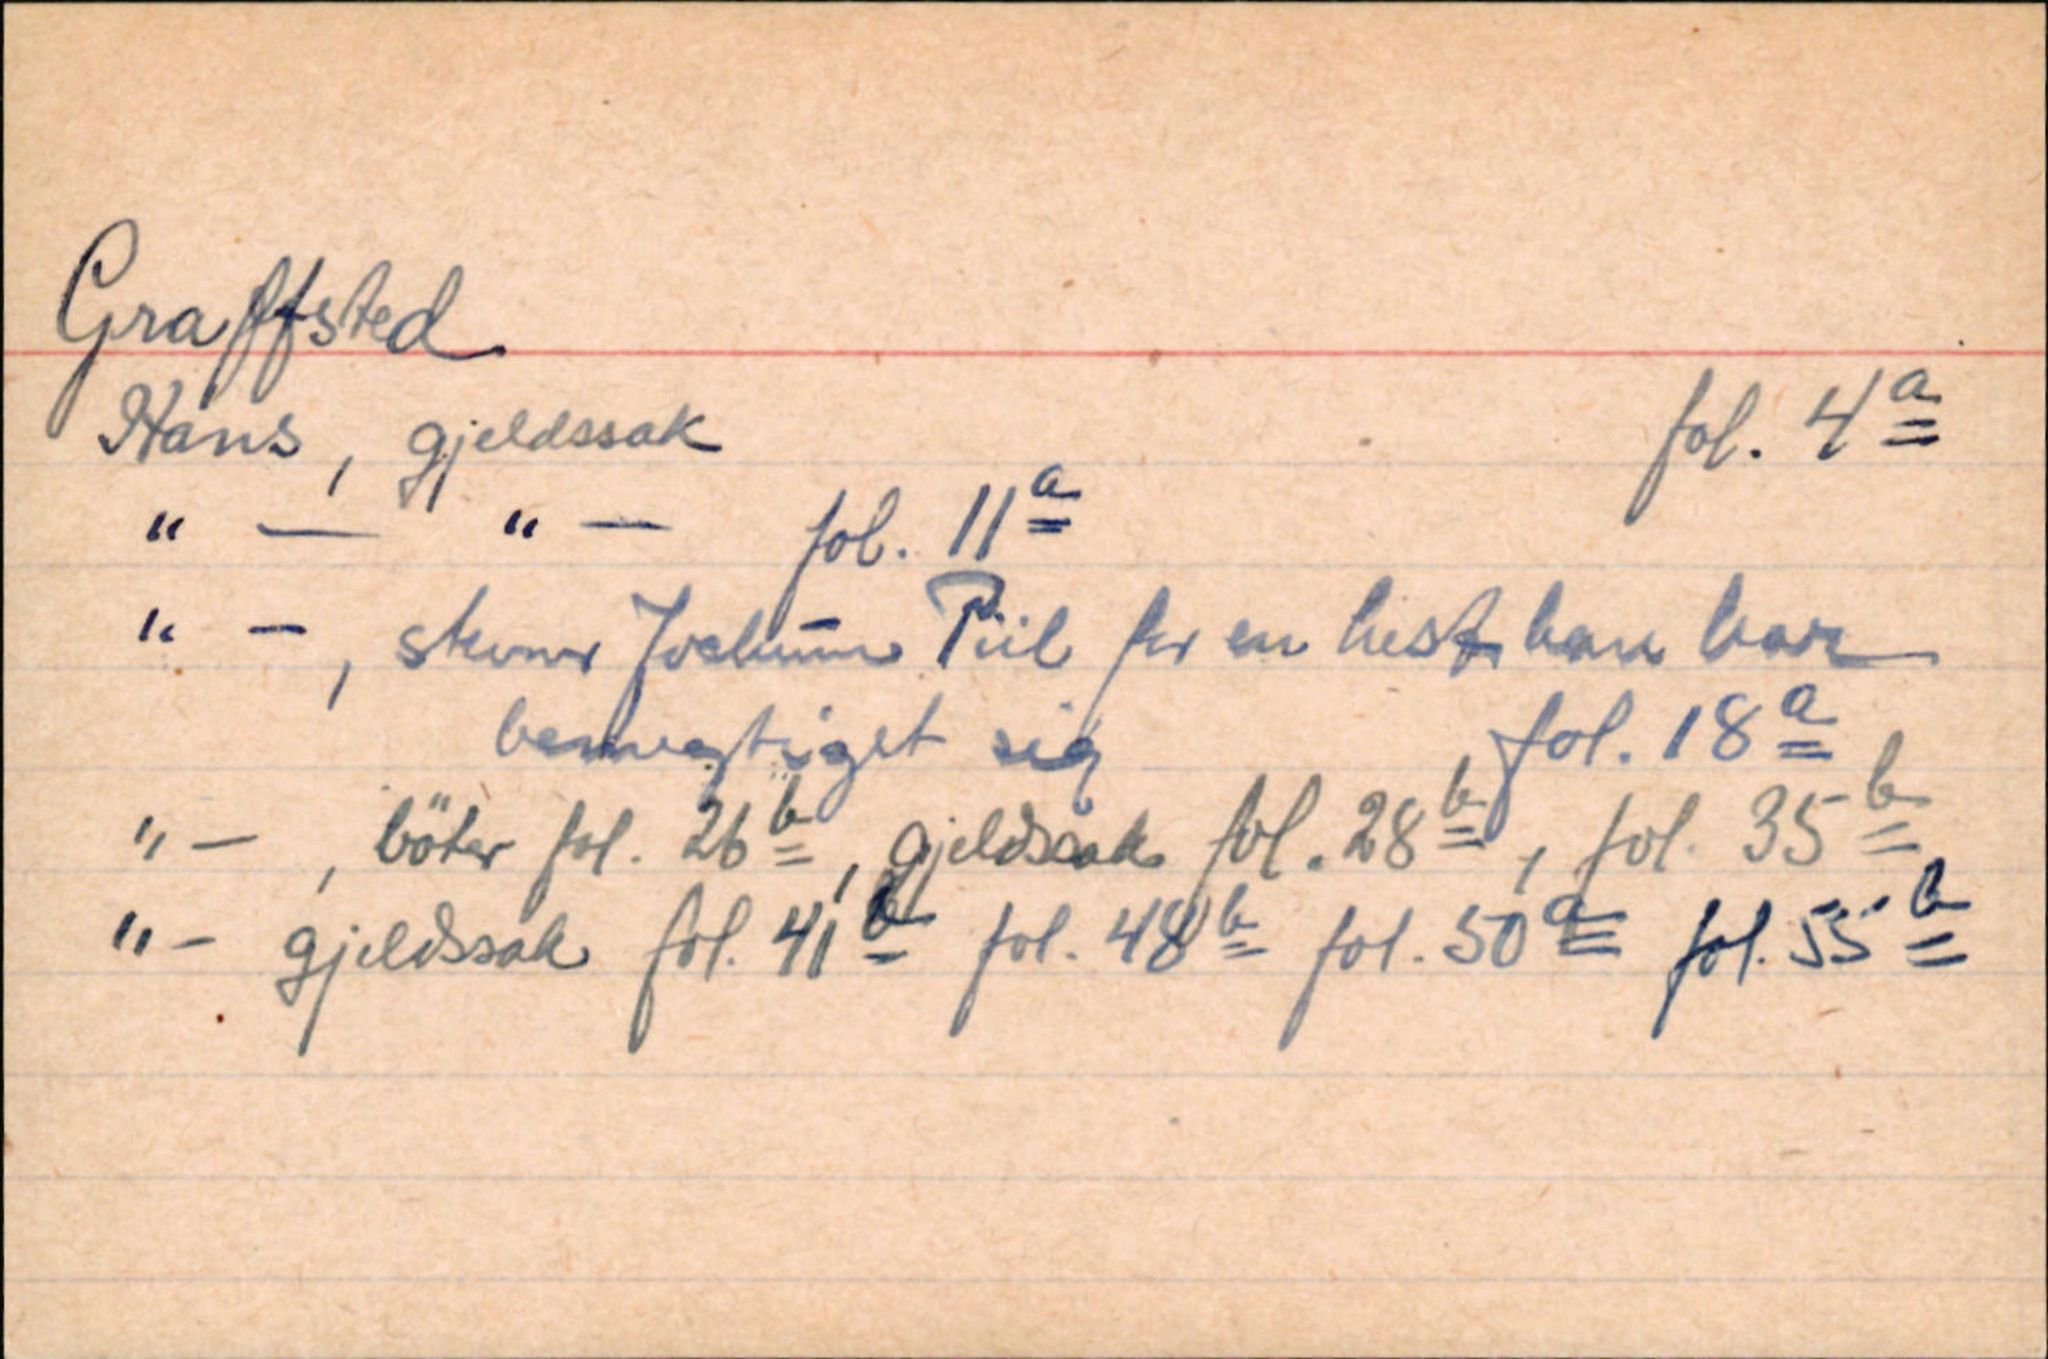 Graffsted
Hans, gjeldssak fol. 4a
" — " — fol. 11a
" —, stevner Jochum Piil for en hest han har
bemegtiget sig fol. 18a
" —, böter fol. 26b, gjeldssak fol. 28b, fol. 35b
" — gjeldssak fol. 41b fol. 48b fol. 50a fol. 55b